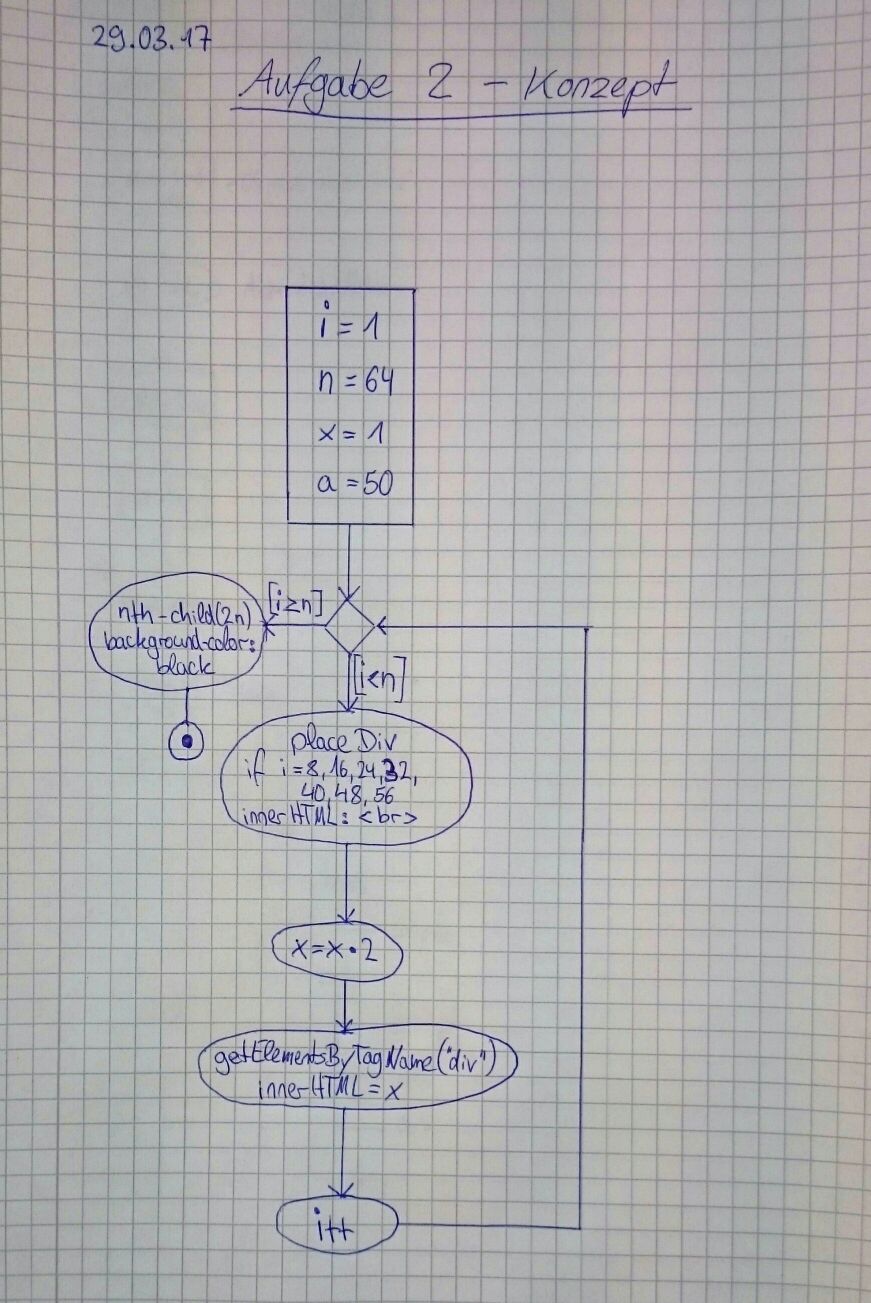 29.03.17
Aufgabe 2 - Konzept
i = 1
n = 64
x = 1
a = 50
[i≥n]
nth-child(2n)
background-color:
black
[i<n]
place Div
if i=8, 16, 24, 32,
40, 48, 56
innerHTML: <br>
x=x·2
getElementsByTagName("div")
innerHTML = x
i++